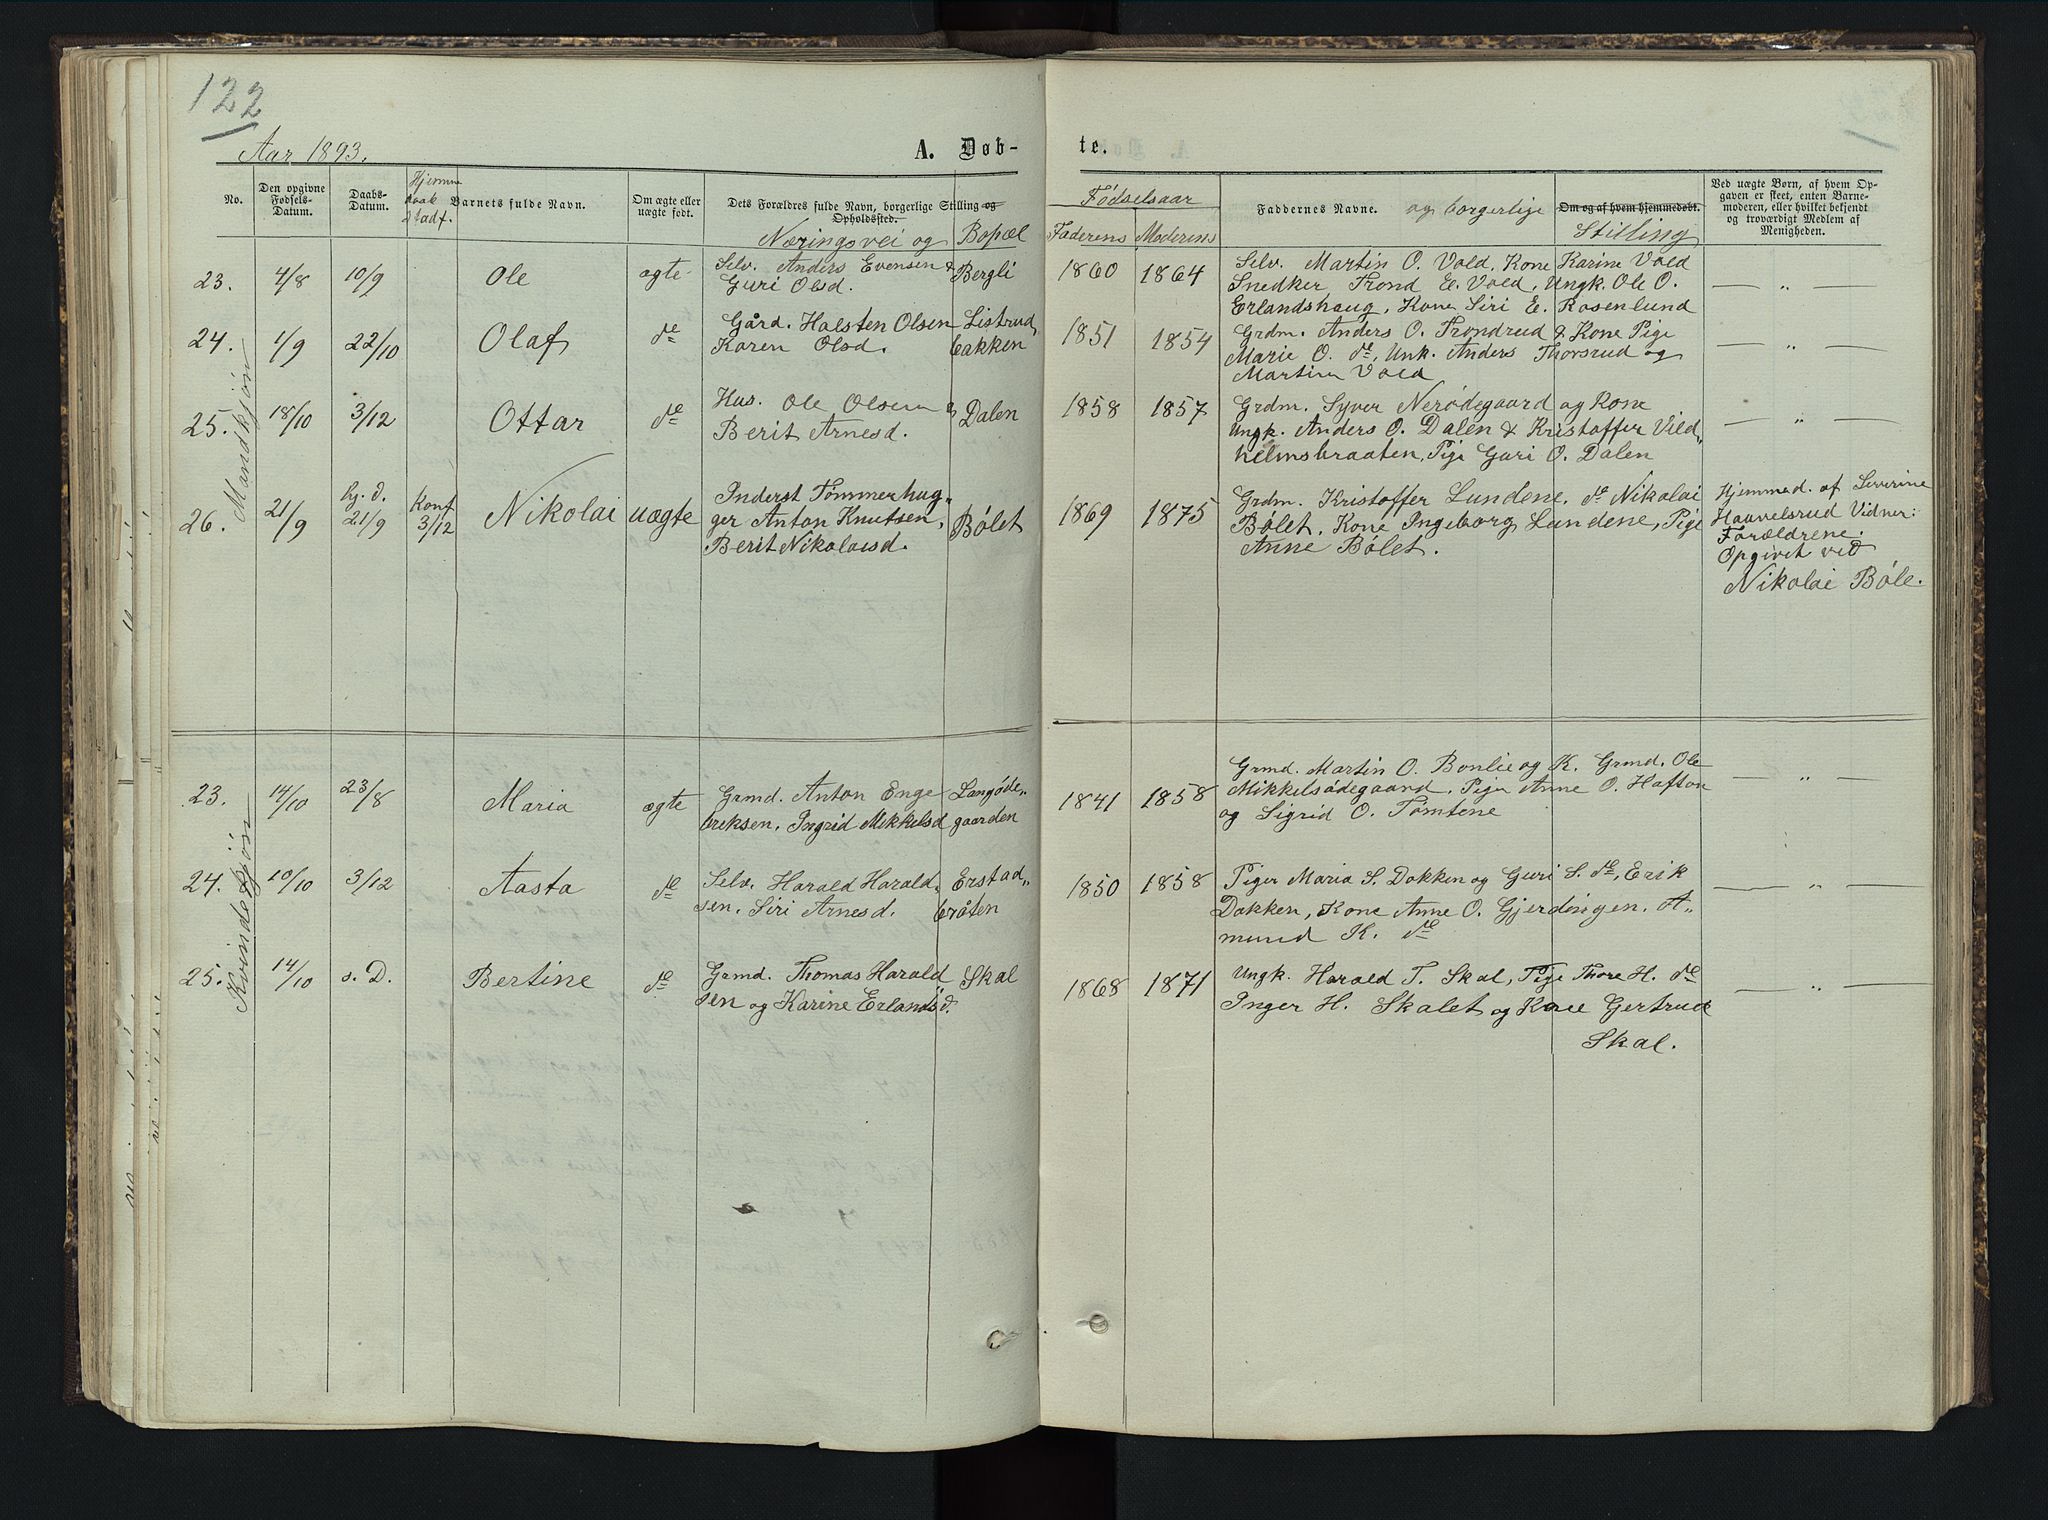 122
Aar 1893.
A. Døb-
te.
No.
Den opgivne Fødsels-Datum.
Daabs-Datum.
Hjemme daab Stadf.
Barnets fulde Navn.
Om ægte eller uægte født.
Dets Forældres fulde Navn, borgerlige Stilling og Opholdssted.
Næringsvei og Bopæl
Fødselsaar
Faderens Moderens
Faddernes Navne. og borgerlige
Om og af hvem hjemmedøbt.
Stilling
Ved uægte Børn, af hvem Op-
gaven er skeet, enten Barne-
moderen, eller hvilket bekjendt
og troværdigt Medlem af
Menigheden.
Mandkjøn
23. 4/8 10/9 Ole ægte Selv. Anders Evensen & Bergli 1860 1864 Selv. Martin O. Vold, Kone Karine Vold — „ —
Guri Olsd. Snedker Trond E. Vold, Ungk. Ole O.
Erlandshaug, Kone Siri E. Rosenlund
24. 1/9 22/10 Olaf do Gård. Halsten Olsen Listrud, 1851 1854 Grdm. Anders O. Trondrud & Kone Pige — „ —
Karen Olsd. bakken Marie O. do, Unk. Anders Thorsrud og
Martin Vold
25. 18/10 3/12 Ottar do Hus. Ole Olsen & Dalen 1858 1857 Grdm. Syver Nerødegaard og Kone — „ —
Berit Arnesd. Ungk. Anders O. Dalen & Kristoffer Vild„
helmsbraaten, Pige Guri O. Dalen
26. 21/9 hj. d. 21/9 Konf 3/12 Nikolai uægte Inderst Tømmerhug„ Bølet 1869 1875 Grdm. Kristoffer Lundene, do Nikolai Hjemmed. af Severine
ger Anton Knutsen, Bølet, Kone Ingeborg Lundene, Pige Haavelsrud Vidner:
Berit Nikolaisd. Anne Bølet. Forældrene.
Opgivet ved
Nikolai Bøle.
Kvindekjøn
23. 14/10 23/8 Maria ægte Grmd. Anton Enge Langøde„ 1841 1858 Grmd. Martin O. Bonlie og K. Grmd. Ole — „ —
briksen, Ingrid Mikkelsd gaarden Mikkelsødegaard, Pige Anne O. Hafton
og Sigrid O. Tømtene
24. 10/10 3/12 Aasta do Selv. Harald Harald„ Erstad„ 1850 1858 Piger Maria S. Dokken og Guri S. do, Erik — „ —
sen, Siri Arnesd. bråten Dokken, Kone Anne O. Gjerdingen. A„
mund K. do
25. 14/10 s. D. Bertine do Grmd. Thomas Harald Skal 1868 1871 Ungk. Harald T. Skal, Pige Thore H. do — „ —
sen og Karine Erlandsd. Inger H. Skalet og Kone Gertrud
Skal.